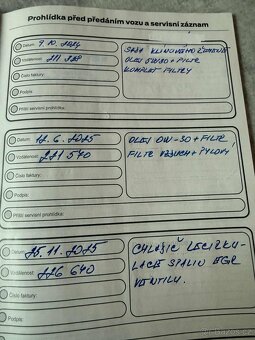 Prohlídka před předáním vozu a servisní záznam
Datum: 9.10.2024
SADA KLINOVÉHO ŘEMENE
Vzdálenost: 211 229
OLEJ 0W30 + FILTR
Číslo faktury:
KOMPLET FILTRY
Podpis:
Příští servisní prohlídka:
Datum: 12.6.2025
OLEJ 0W-30 + FILTR
Vzdálenost: 221 540
FILTR VZDUCH + PYLOVÝ
Číslo faktury:
Podpis:
Příští servisní prohlídka:
Datum: 25.11.2025
CHLADIČ RECIRKU-
Vzdálenost: 226 640
LACE SPALIN EGR
Číslo faktury:
VENTILU.
Podpis:
Příští servisní prohlídka: